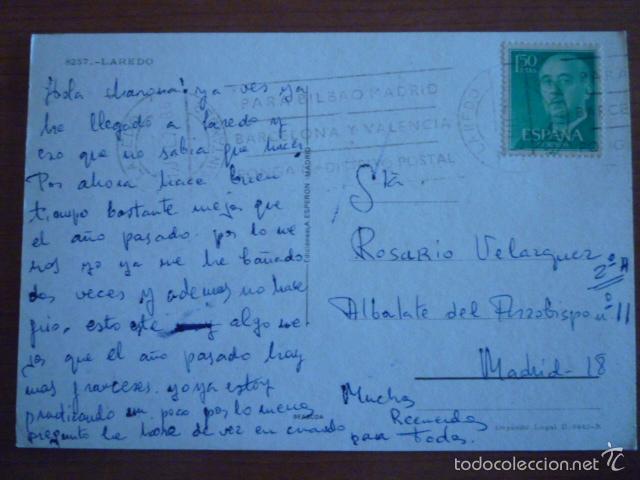 8257.-LAREDO
¡Hola chavona! ya ves ya
he llegado a Laredo y
eso que no sabia que hacer.
Por ahora hace buen
tiempo bastante mejor que
el año pasado. por lo me
nos yo ya me he bañado
dos veces y ademas no hace
frio, esto este algo me
jos que el año pasado hay
mas franceses. yo ya estoy
practicando un poco por lo menos
pregunto la hora de vez en cuando
Muchos
Recuerdos
para todos.
PARA BILBAO MADRID
BARCELONA Y VALENCIA
POSTAL
LAREDO
PARA
BARCE
1'50
PTAS
ESPAÑA
CORREOS
Ediciones A. ESPERON - MADRID
Srta.
Rosario Velazquez
2º A
Albalate del Arzobispo nº 11
Madrid-18
Depósito Legal
todocoleccion
todocoleccion.net